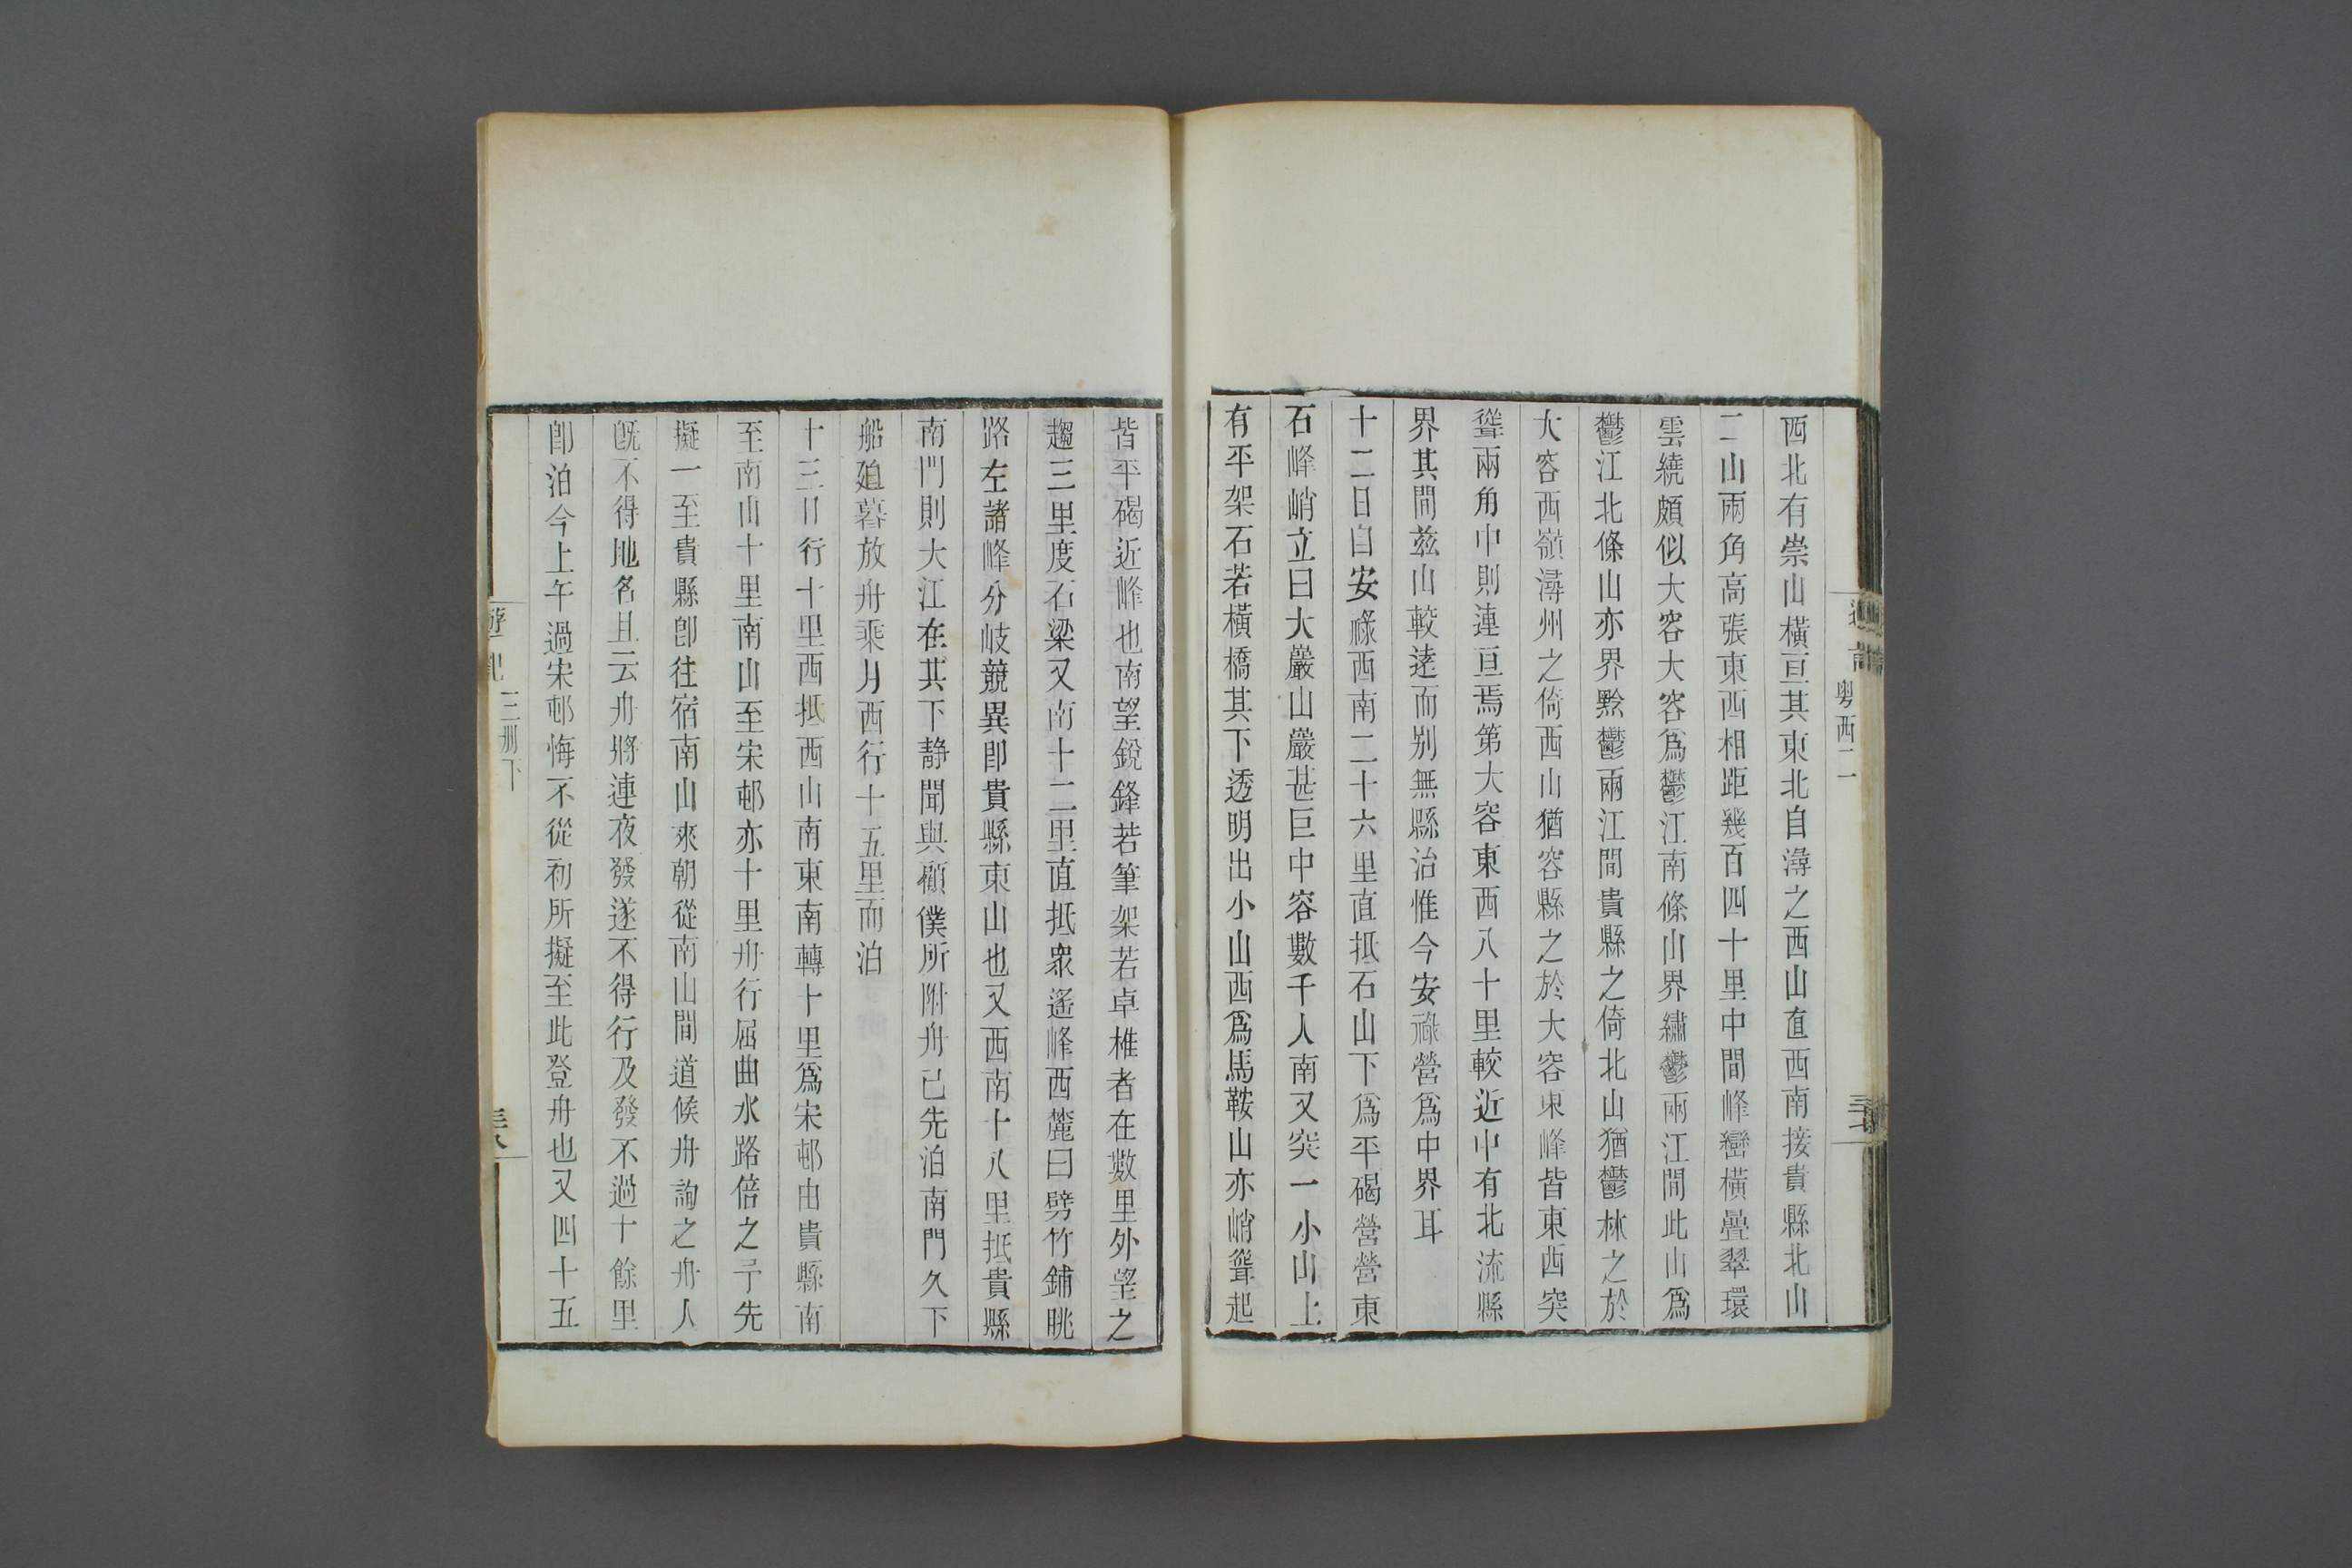 粤西二
西北有崇山橫亘其東北自潯之西山直西南接貴縣北山
二山兩角高張東西相距幾百四十里中間峰巒橫疊翠環
雲繞頗似大容大容爲鬱江南條山界繡鬱兩江間此山爲
鬱江北條山亦界黔鬱兩江間貴縣之倚北山猶鬱林之於
大容西嶺潯州之倚西山猶容縣之於大容東峰皆東西突
聳兩角中則連亘焉第大容東西八十里較近中有北流縣
界其間玆山較逺而别無縣治惟今安祿營爲中界耳
十二日自安祿西南二十六里直抵石山下爲平碣營營東
石峰峭立曰大巖山巖甚巨中容數千人南又突一小山上
有平架石若橫橋其下透明出小山西爲馬鞍山亦峭聳起
皆平碣近峰也南望銳鋒若筆架若卓椎者在數里外望之
趨三里度石梁又南十二里直抵衆遙峰西麓曰劈竹鋪眺
路左諸峰分岐競異卽貴縣東山也又西南十八里抵貴縣
南門則大江在其下静聞與顧僕所附舟已先泊南門久下
船廹暮放舟乘月西行十五里而泊
十三日行十里西抵西山南東南轉十里爲宋邨由貴縣南
至南山十里南山至宋邨亦十里舟行屈曲水路倍之予先
擬一至貴縣卽往宿南山來朝從南山間道候舟詢之舟人
旣不得地名且云舟將連夜發遂不得行及發不過十餘里
卽泊今上午過宋邨悔不從初所擬至此登舟也又四十五
遊記 三册下 三八